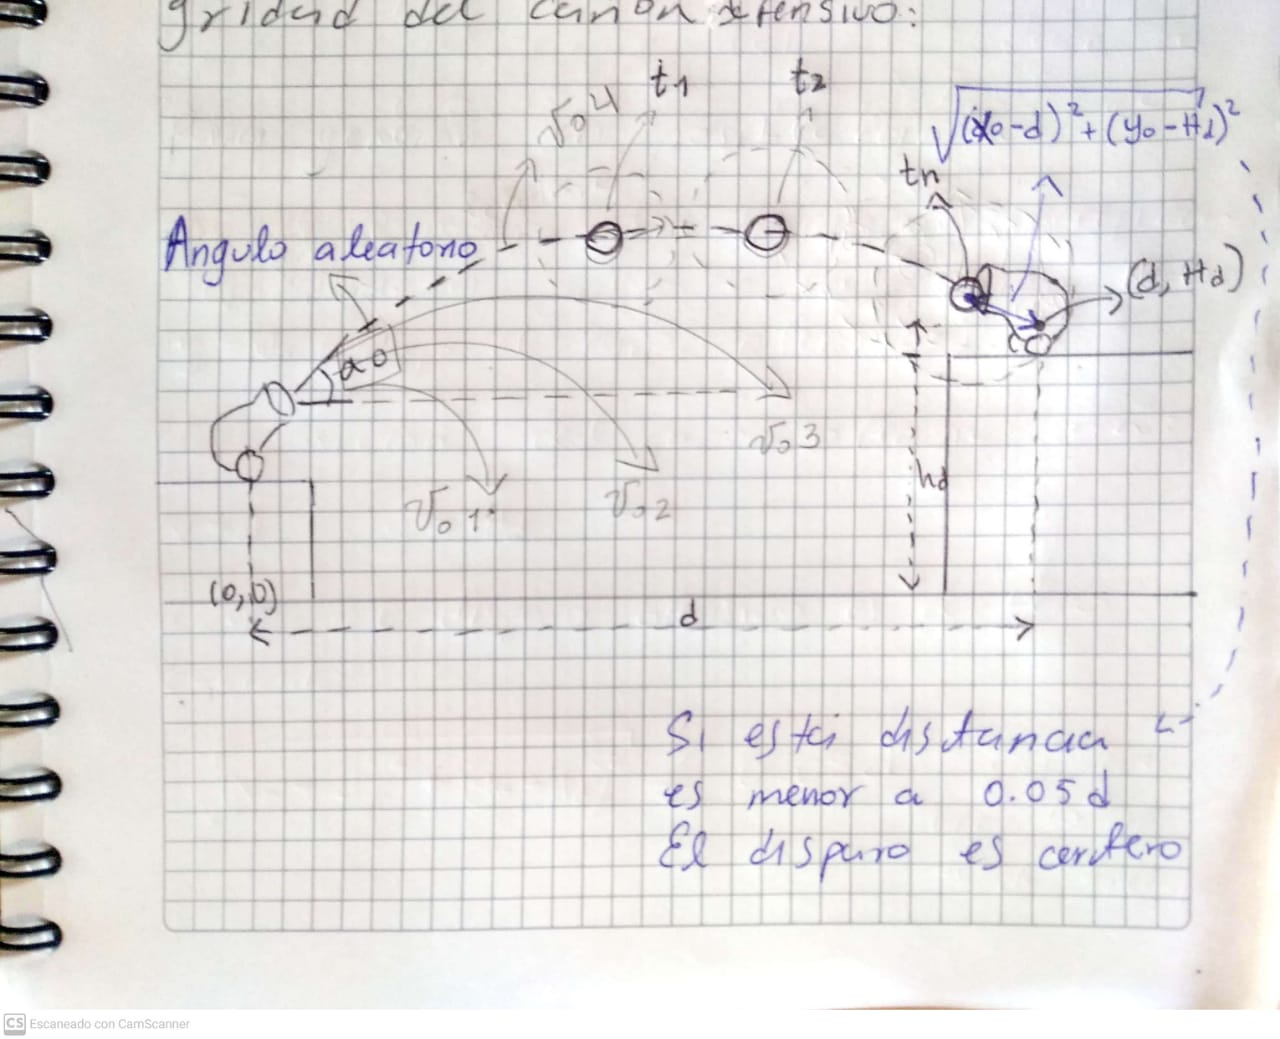 gridad del cañon ofensivo:
t1
t2
Vo4
√(xo-d)² + (yo-Hd)²
tn
Angulo aleatorio
(d, Hd)
ao
Vo3
hd
Vo1
Vo2
(0,0)
d
Si esta distancia
es menor a 0.05d
El disparo es certero
CS Escaneado con CamScanner